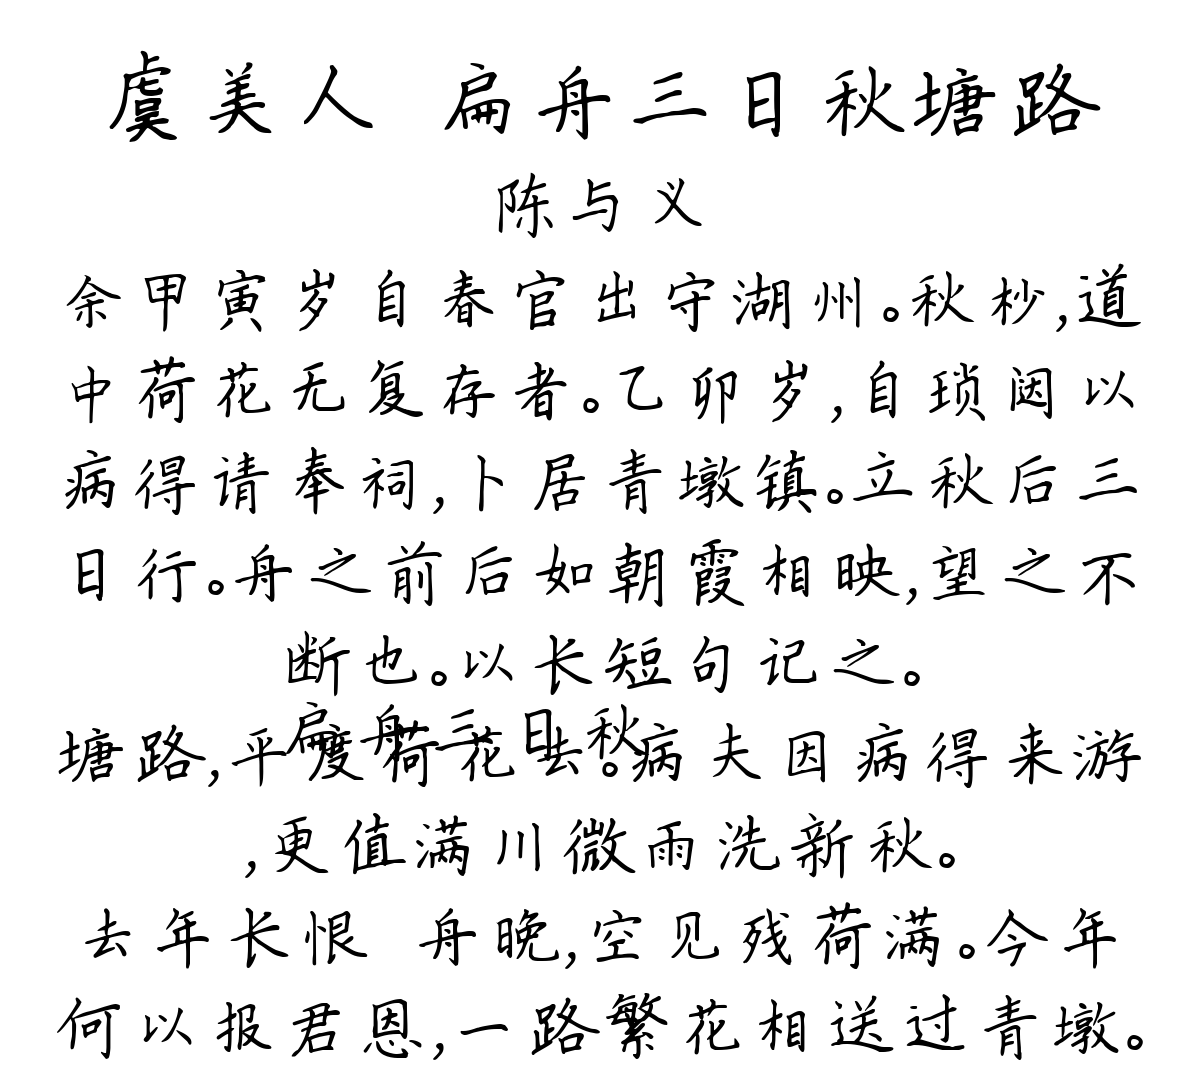 虞美人 扁舟三日秋塘路
陈与义
余甲寅岁自春官出守湖州。秋杪,道
中荷花无复存者。乙卯岁,自琐闼以
病得请奉祠,卜居青墩镇。立秋后三
日行。舟之前后如朝霞相映,望之不
断也。以长短句记之。
扁舟三日秋
塘路,平度荷花去。病夫因病得来游
,更值满川微雨洗新秋。
去年长恨 舟晚,空见残荷满。今年
何以报君恩,一路繁花相送过青墩。